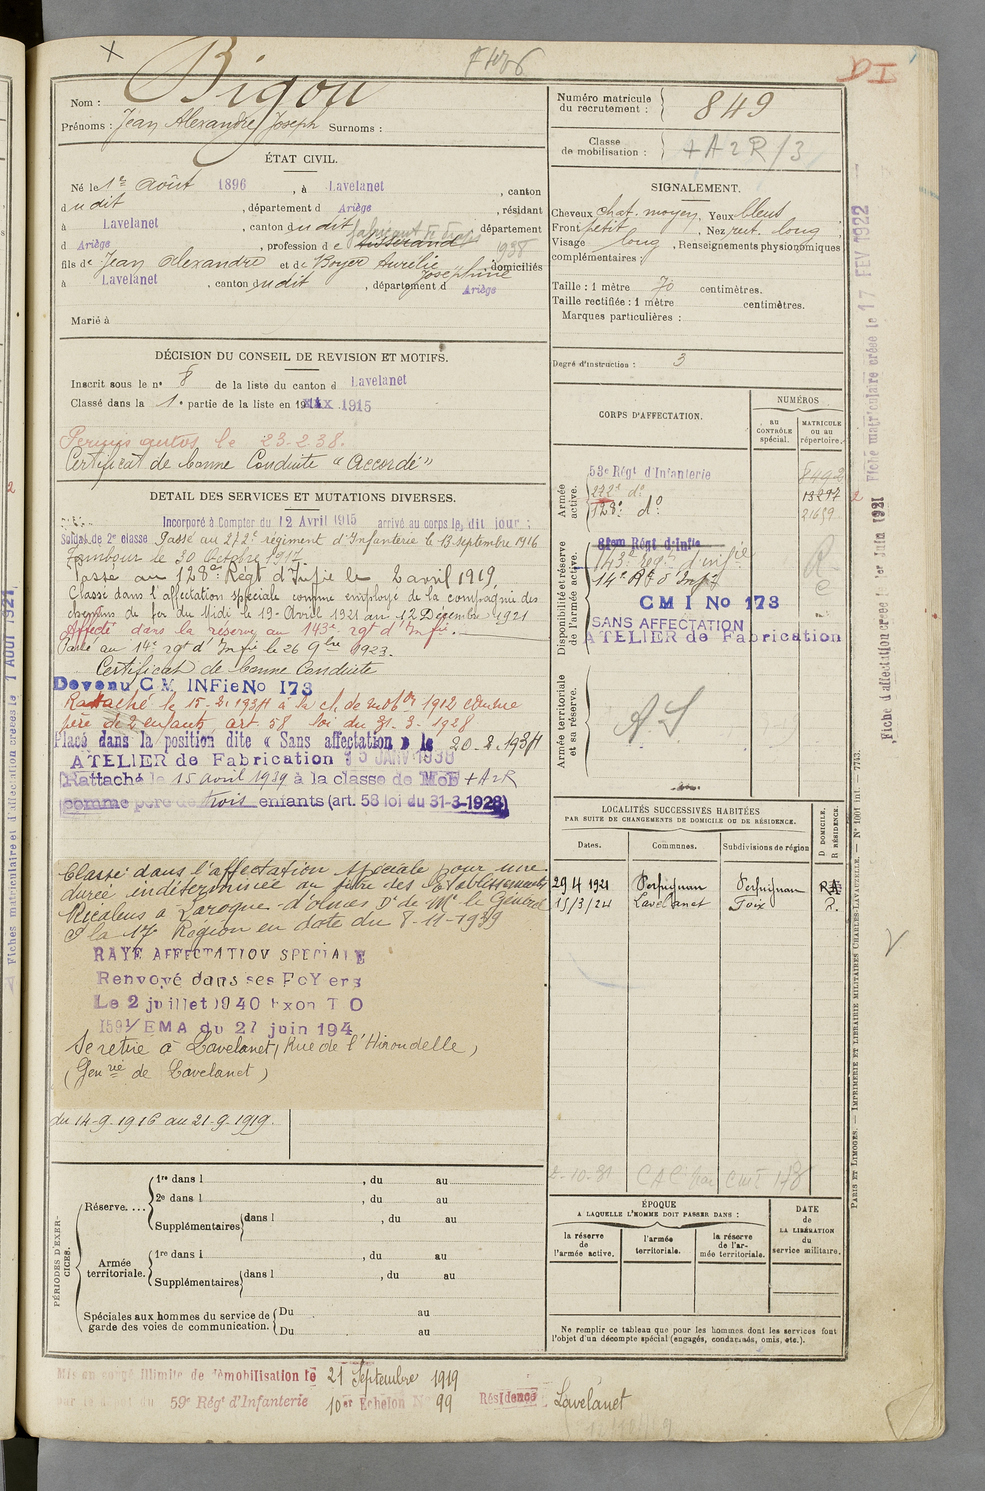 Bigou
Nom :
Prénoms : Jean Alexandre Joseph Surnoms :
ÉTAT CIVIL.
Né le 1er Août 1896, à Lavelanet, canton
dudit, département d Ariège, résidant
à Lavelanet, canton dudit, département
d Ariège, profession de tisserand
1938
fils de Jean Alexandre et de Boyer Aurélie Joséphine domiciliés
à Lavelanet, canton dudit, département d Ariège
Marié à
DÉCISION DU CONSEIL DE REVISION ET MOTIFS.
Inscrit sous le n° 8 de la liste du canton d Lavelanet
Classé dans la 1e partie de la liste en 1915
Permis autos le 23-2-38.
Certificat de bonne Conduite "Accordé"
DETAIL DES SERVICES ET MUTATIONS DIVERSES.
Incorporé à Compter du 12 Avril 1915 arrivé au corps le dit jour ;
Soldat de 2e classe Passé au 272e régiment d'Infanterie le 13 septembre 1916
Tambour le 30 Octobre 1917
Passé au 128e Régt d'Infie le 2 avril 1919.
Classé dans l'affectation spéciale comme employé de la compagnie des
chemins de fer du Midi le 19-Avril 1921 au 12 Décembre 1921
Affecté dans la réserve au 143e rgt d'Infie.
Passé au 14e rgt d'Infie le 26 9bre 1923.
Certificat de bonne Conduite
Devenu C M INFie No 173
Rattaché le 15-2-1934 à la cl. de mobon 1912 comme
père de 2 enfants art. 58 loi du 31-3-1928
Placé dans la position dite « Sans affectation » le 20-2-1934
ATELIER de Fabrication 15 JANV 1938
Rattaché le 15 avril 1939 à la classe de MOB + A2R
comme père de trois enfants (art. 58 loi du 31-3-1928)
Classé dans l'affectation spéciale pour une
durée indéterminée au titre des Etablissements
Ricalens à Laroque-d'olmes Don de Mr le Général
Ct la 17e Région en date du 8-11-1939
RAYE AFFECTATION SPECIALE
Renvoyé dans ses FoYers
Le 2 juillet 1940 Exon T O
1591/EMA du 27 juin 194
Se retire à Lavelanet, Rue de l'Hirondelle,
(Genrie de Lavelanet)
du 14-9-1916 au 21-9-1919.
PÉRIODES D'EXERCICES.
Réserve....
1re dans l , du au
2e dans l , du au
Supplémentaires dans l , du au
Armée territoriale.
1re dans l , du au
Supplémentaires dans l , du au
Spéciales aux hommes du service de garde des voies de communication.
Du au
Du au
Mis en congé illimité de démobilisation le 21 Septembre 1919
par le dépôt du 59e Régt d'Infanterie 10er Echelon N° 99 Résidence Lavelanet
Numéro matricule du recrutement : 849
Classe de mobilisation : +A2R/3
SIGNALEMENT.
Cheveux chat. moyen, Yeux bleus
Front petit, Nez rect. long,
Visage long, Renseignements physionomiques
complémentaires :
Taille : 1 mètre 70 centimètres.
Taille rectifiée : 1 mètre centimètres.
Marques particulières :
Degré d'instruction : 3
CORPS D'AFFECTATION.
NUMÉROS
AU CONTRÔLE spécial.
MATRICULE ou au répertoire.
Armée active.
53e Régt d'Infanterie
272e do
128e do
13297
Disponibilité et réserve de l'armée active.
143e régt d'infie
14e Rt d'Infie
C M I No 173
SANS AFFECTATION
ATELIER de Fabrication
Armée territoriale et sa réserve.
A S
LOCALITÉS SUCCESSIVES HABITÉES
PAR SUITE DE CHANGEMENTS DE DOMICILE OU DE RÉSIDENCE.
D DOMICILE. R RÉSIDENCE.
Dates. Communes. Subdivisions de région
29 4 1921 Perpignan Perpignan R
15/3/24 Lavelanet Foix R.
ÉPOQUE
A LAQUELLE L'HOMME DOIT PASSER DANS :
la réserve de l'armée active.
l'armée territoriale.
la réserve de l'armée territoriale.
DATE DE LA LIBÉRATION du service militaire.
Ne remplir ce tableau que pour les hommes dont les services font
l'objet d'un décompte spécial (engagés, condamnés, omis, etc.).
PARIS ET LIMOGES. — IMPRIMERIE ET LIBRAIRIE MILITAIRES CHARLES-LAVAUZELLE. — N° 1001 int. — 7743.
Fiche matriculaire créée le 17 FEV 1922
Fiche d'affectation créée le 1er Juin 1921
Fiches matriculaire et d'affectation créées le 1 AOUT 1921